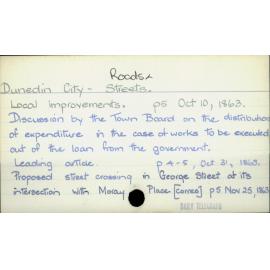 Roads
Dunedin City - Streets.
Local Improvements. p5 Oct 10, 1863.
Discussion by the Town Board on the distribution
of expenditure in the case of works to be executed
out of the loan from the government.
Leading article. p 4-5, Oct 31, 1863.
Proposed street crossing in George Street at its
intersection with Moray Place [corner] p5 Nov 25, 1863
DAILY TELEGRAPH